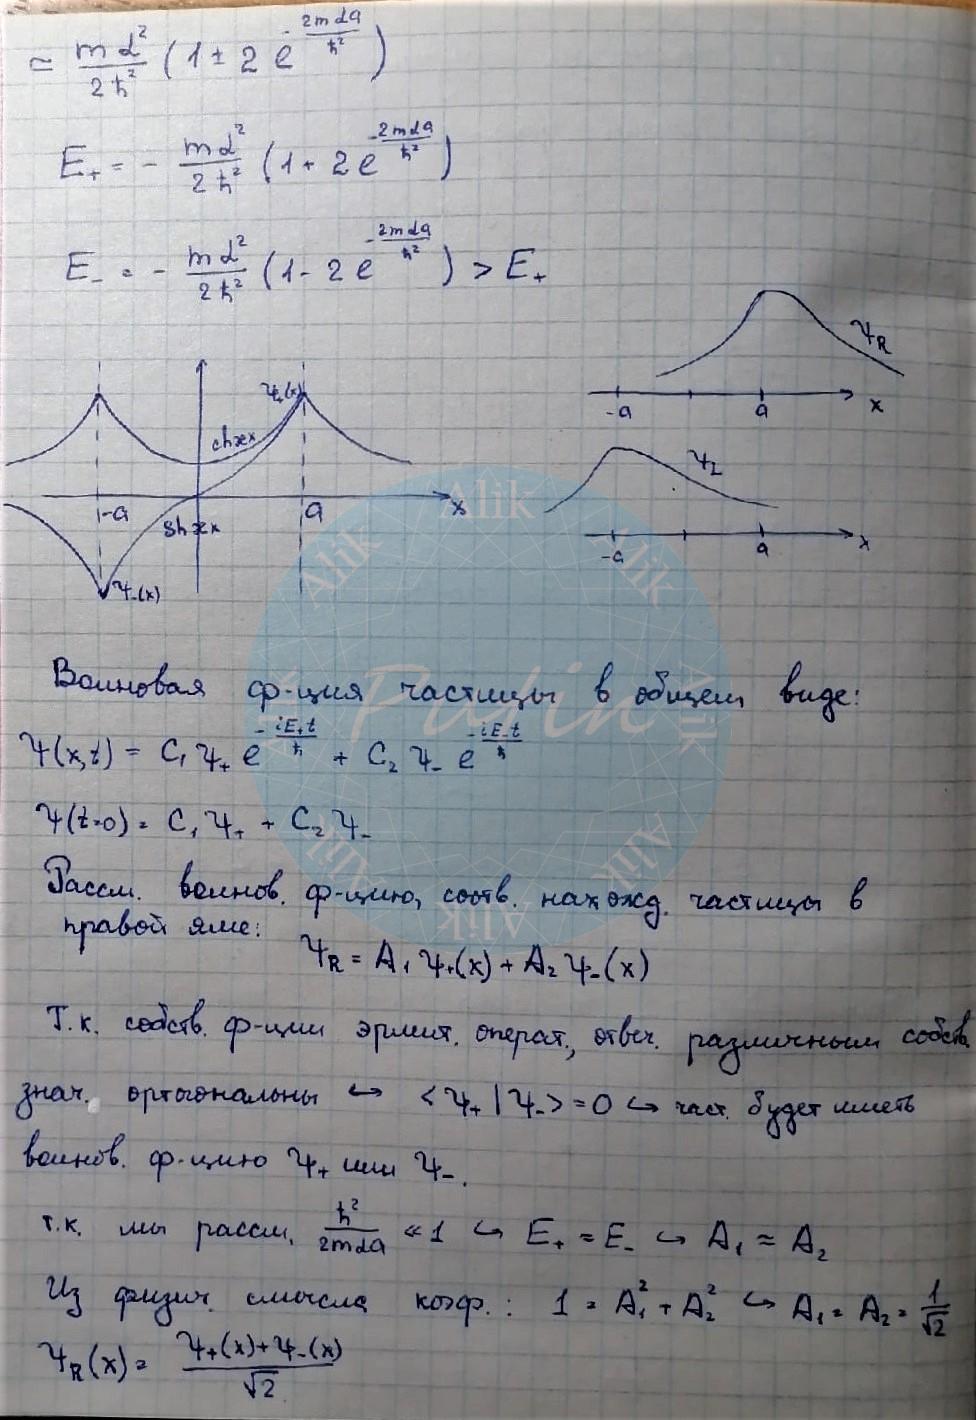 ≃ mα²/2ħ² (1 ± 2 e^(-2mαa/ħ²))
E₊ = - mα²/2ħ² (1 + 2 e^(-2mαa/ħ²))
E₋ = - mα²/2ħ² (1 - 2 e^(-2mαa/ħ²)) > E₊
Ψ_R
-a a x
Ψ₊(x)
ch ϰx
Ψ_L
-a a x
sh ϰx
-a a x
Ψ₋(x)
Alik Alik Alik Alik Alik Alik Alik Alik
Putin
Волновая ф-ция частицы в общем виде:
Ψ(x,t) = C₁ Ψ₊ e^(-iE₊t/ħ) + C₂ Ψ₋ e^(-iE₋t/ħ)
Ψ(t=0) = C₁ Ψ₊ + C₂ Ψ₋
Рассм. волнов. ф-цию, соотв. нахожд. частицы в
правой яме:
Ψ_R = A₁ Ψ₊(x) + A₂ Ψ₋(x)
Т.к. собств. ф-ции эрмит. операт., отвеч. различным собств.
знач. ортогональны ↪ <Ψ₊|Ψ₋> = 0 ↪ част. будет иметь
волнов. ф-цию Ψ₊ или Ψ₋.
т.к. мы рассм. ħ²/2mαa ≪ 1 ↪ E₊ ≈ E₋ ↪ A₁ ≈ A₂
Из физич. смысла коэф.: 1 = A₁² + A₂² ↪ A₁ = A₂ = 1/√2
Ψ_R(x) = (Ψ₊(x) + Ψ₋(x))/√2